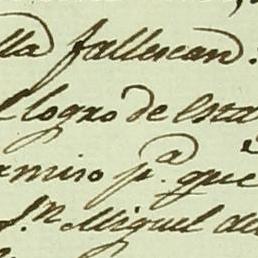 lla fallescan.
l logro de esta
rmiso p.ª que
S.n Miguel del